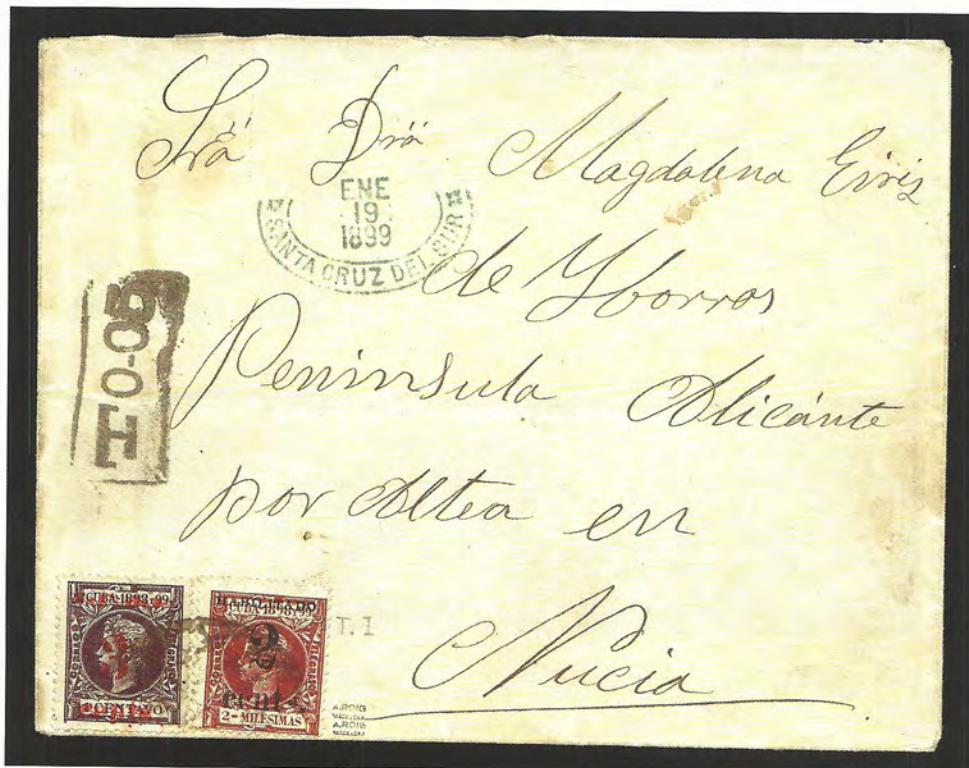 Srä Drä Magdalena Eiris
ENE
19
1899
SANTA CRUZ DEL SUR
de Yborros
Peninsula Alicánte
por Altea en
Nucia
T.1
CUBA·1898 Y 99
1 CENTAVO
HABILITADO
CUBA·1898 Y 99
2
cents
2- MILESIMAS
A.ROIG
A.ROIG